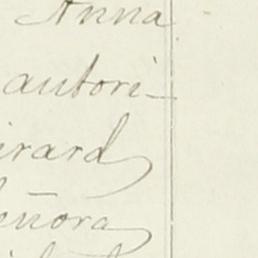 Anna
autori-
irard
eñora